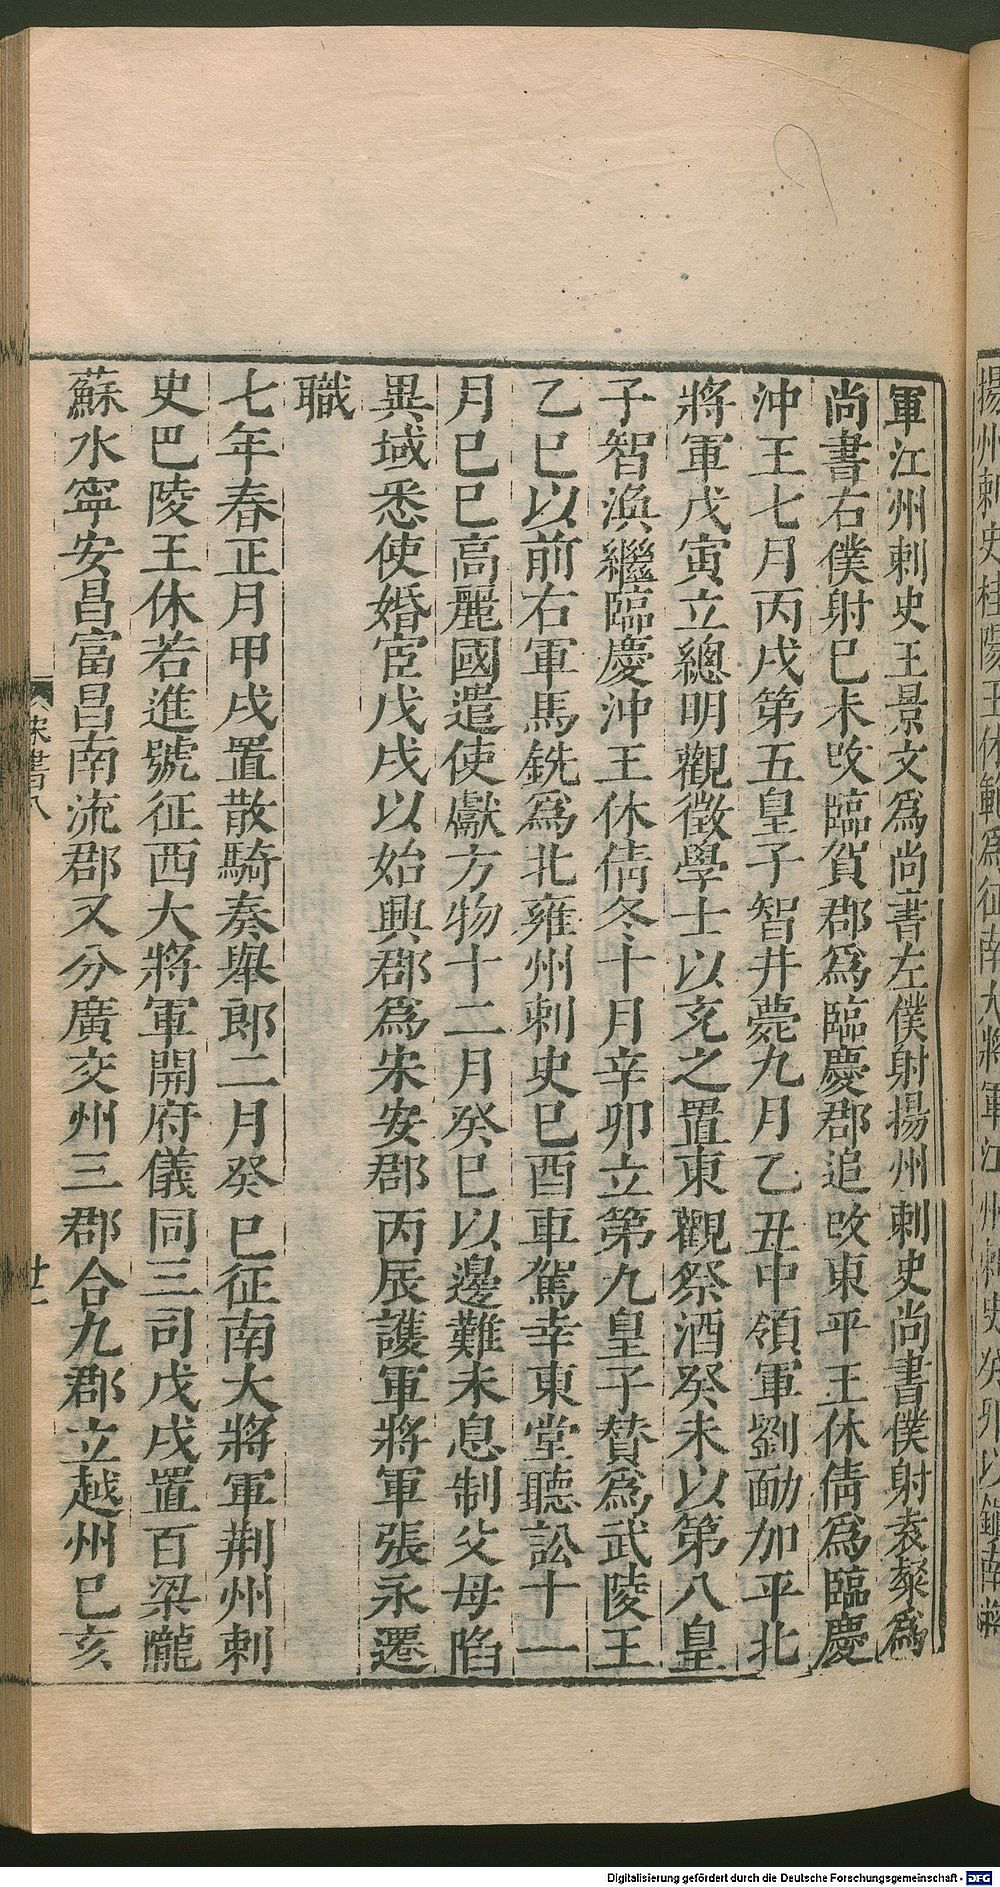 揚州刺史桂陽王休範爲征南大將軍江州刺史癸卯以鎮南將
軍江州刺史王景文爲尚書左僕射揚州刺史尚書僕射袁粲爲
尚書右僕射巳未攺臨賀郡爲臨慶郡追攺東平王休倩爲臨慶
沖王七月丙戌第五皇子智井薨九月乙丑中領軍劉勔加平北
將軍戊寅立總明觀徵學士以充之置東觀祭酒癸未以第八皇
子智渙繼臨慶沖王休倩冬十月辛卯立第九皇子贊爲武陵王
乙巳以前右軍馬銑爲北雍州刺史巳酉車駕幸東堂聽訟十一
月巳巳高麗國遣使獻方物十二月癸巳以邊難未息制父母陷
異域悉使婚宦戊戌以始興郡爲宋安郡丙辰護軍將軍張永遷
職
七年春正月甲戌置散騎奏舉郎二月癸巳征南大將軍荆州刺
史巴陵王休若進號征西大將軍開府儀同三司戊戌置百梁隴
蘇水寧安昌富昌南流郡又分廣交州三郡合九郡立越州巳亥
宋書八
廿一
Digitalisierung gefördert durch die Deutsche Forschungsgemeinschaft - DFG